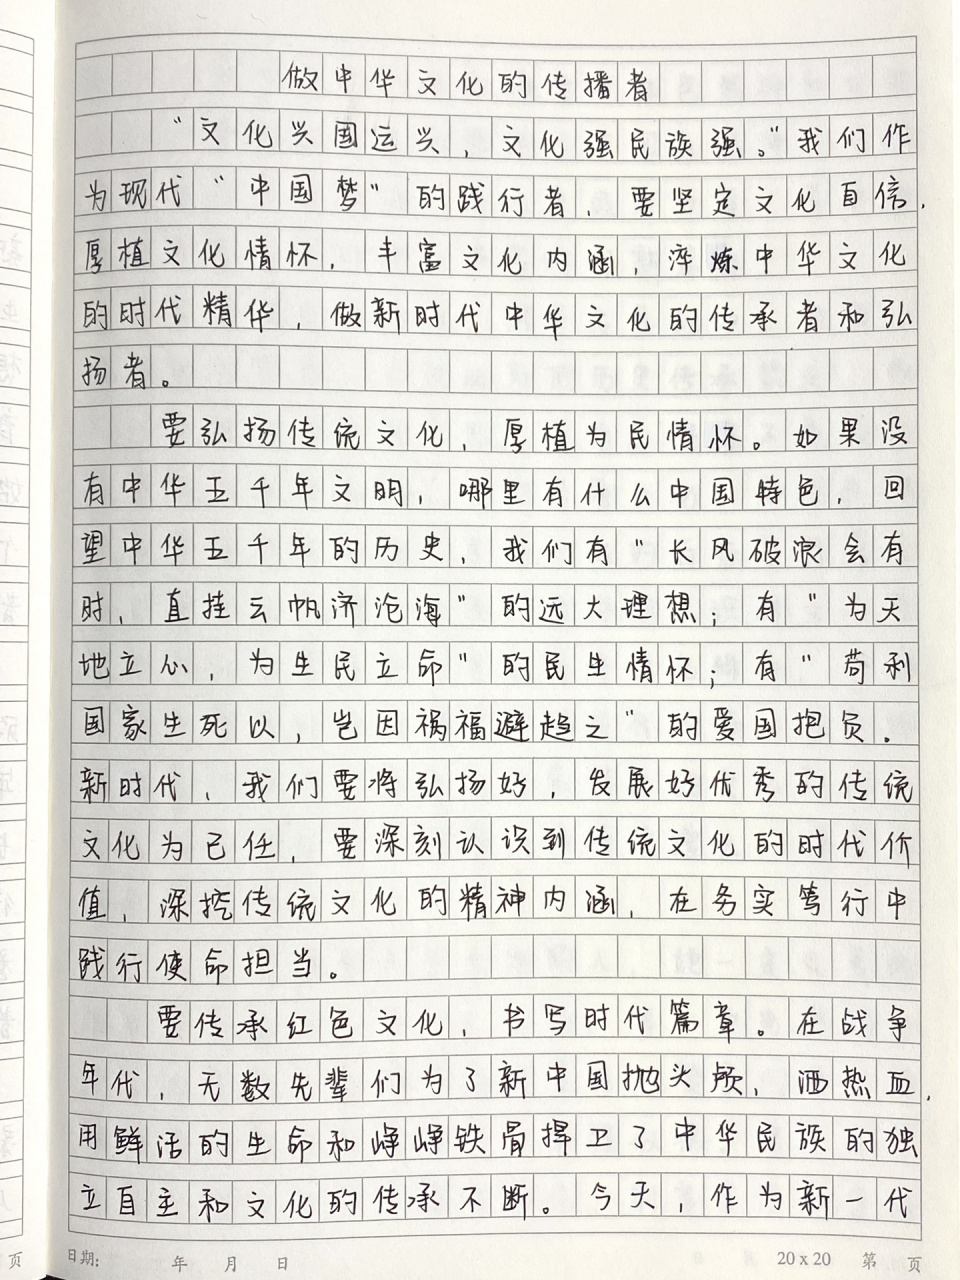 做中华文化的传播者
“文化兴国运兴，文化强民族强。”我们作
为现代“中国梦”的践行者，要坚定文化自信，
厚植文化情怀，丰富文化内涵，淬炼中华文化
的时代精华，做新时代中华文化的传承者和弘
扬者。
要弘扬传统文化，厚植为民情怀。如果没
有中华五千年文明，哪里有什么中国特色，回
望中华五千年的历史，我们有“长风破浪会有
时，直挂云帆济沧海”的远大理想；有“为天
地立心，为生民立命”的民生情怀；有“苟利
国家生死以，岂因祸福避趋之”的爱国抱负。
新时代，我们要将弘扬好，发展好优秀的传统
文化为已任，要深刻认识到传统文化的时代价
值，深挖传统文化的精神内涵，在务实笃行中
践行使命担当。
要传承红色文化，书写时代篇章。在战争
年代，无数先辈们为了新中国抛头颅，洒热血，
用鲜活的生命和峥峥铁骨捍卫了中华民族的独
立自主和文化的传承不断。今天，作为新一代
页 日期: 年 月 日 20 x 20 第 页